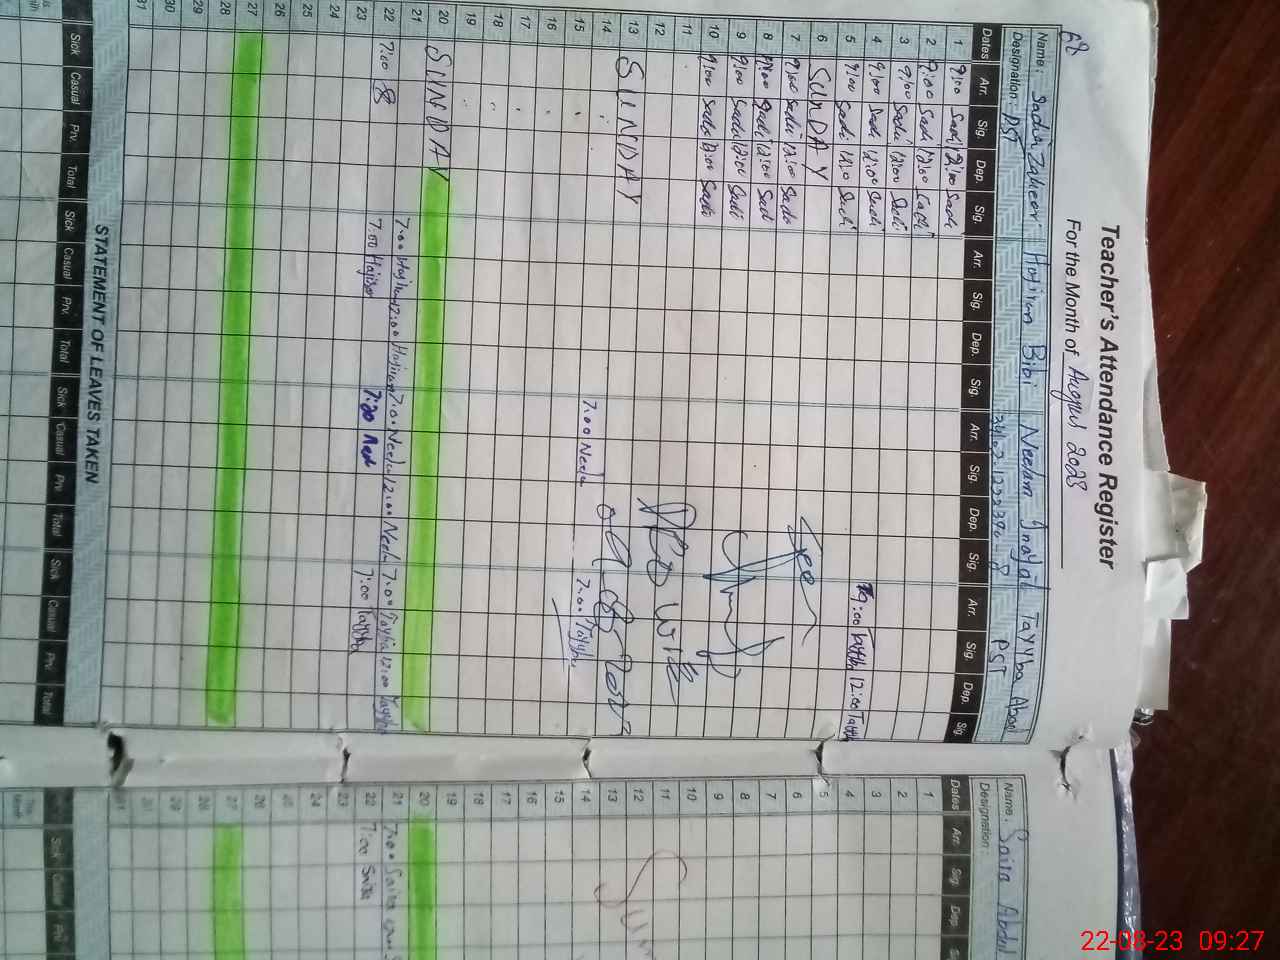 Teacher's Attendance Register
For the Month of August 2023
Name: Sadia Zaheer Hajiran Bibi Neelam Inayat Tayyba
Designation: PST PST
Dates Arr. Sig. Dep. Sig. Arr. Sig. Dep. Sig. Arr. Sig. Dep. Sig. Arr. Sig. Dep. Sig.
1 9:00 Sadi 12:00 Sadi
2 9:00 Sadi 12:00 Sadi
3 9:00 Sadi 12:00 Sadi
4 9:00 Sadi 12:00 Sadi
5 9:00 Sadi 12:0 Sadi 9:00 Tayyba 12:00 Tayyba
6 SUNDAY
7 9:00 Sadi 12:00 Sadi
8 9:00 Sadi 12:00 Sadi
9 9:00 Sadi 12:00 Sadi
10 9:00 Sadi 12:00 Sadi
11
12
13 SUNDAY
14
15 7.00 Neelu 7.00 Tayyba
16
17
18
19
20 SUNDAY
21 7.00 Hajiran 12:00 Hajiran 7.00 Neelu 12:00 Neelu 7.00 Tayyba 12:00 Tayyba
22 7:00 7.00 Hajiran 7:20 Neel 7:00 Tayyba
23
24
25
26
27
28
29
30
31
STATEMENT OF LEAVES TAKEN
Sick Casual Prv. Total Sick Casual Prv. Total Sick Casual Prv. Total Sick Casual Prv. Total
Name: Saira Abdul
Designation:
Dates Arr. Sig. Dep.
1
2
3
4
5
6
7
8
9
10
11
12
13 Sun
14
15
16
17
18
19
20
21 7:00 Saira
22 7:00 Saira
23
24
25
26
27
28
29
30
31
Sick Casual Prv.
22-08-23 09:27